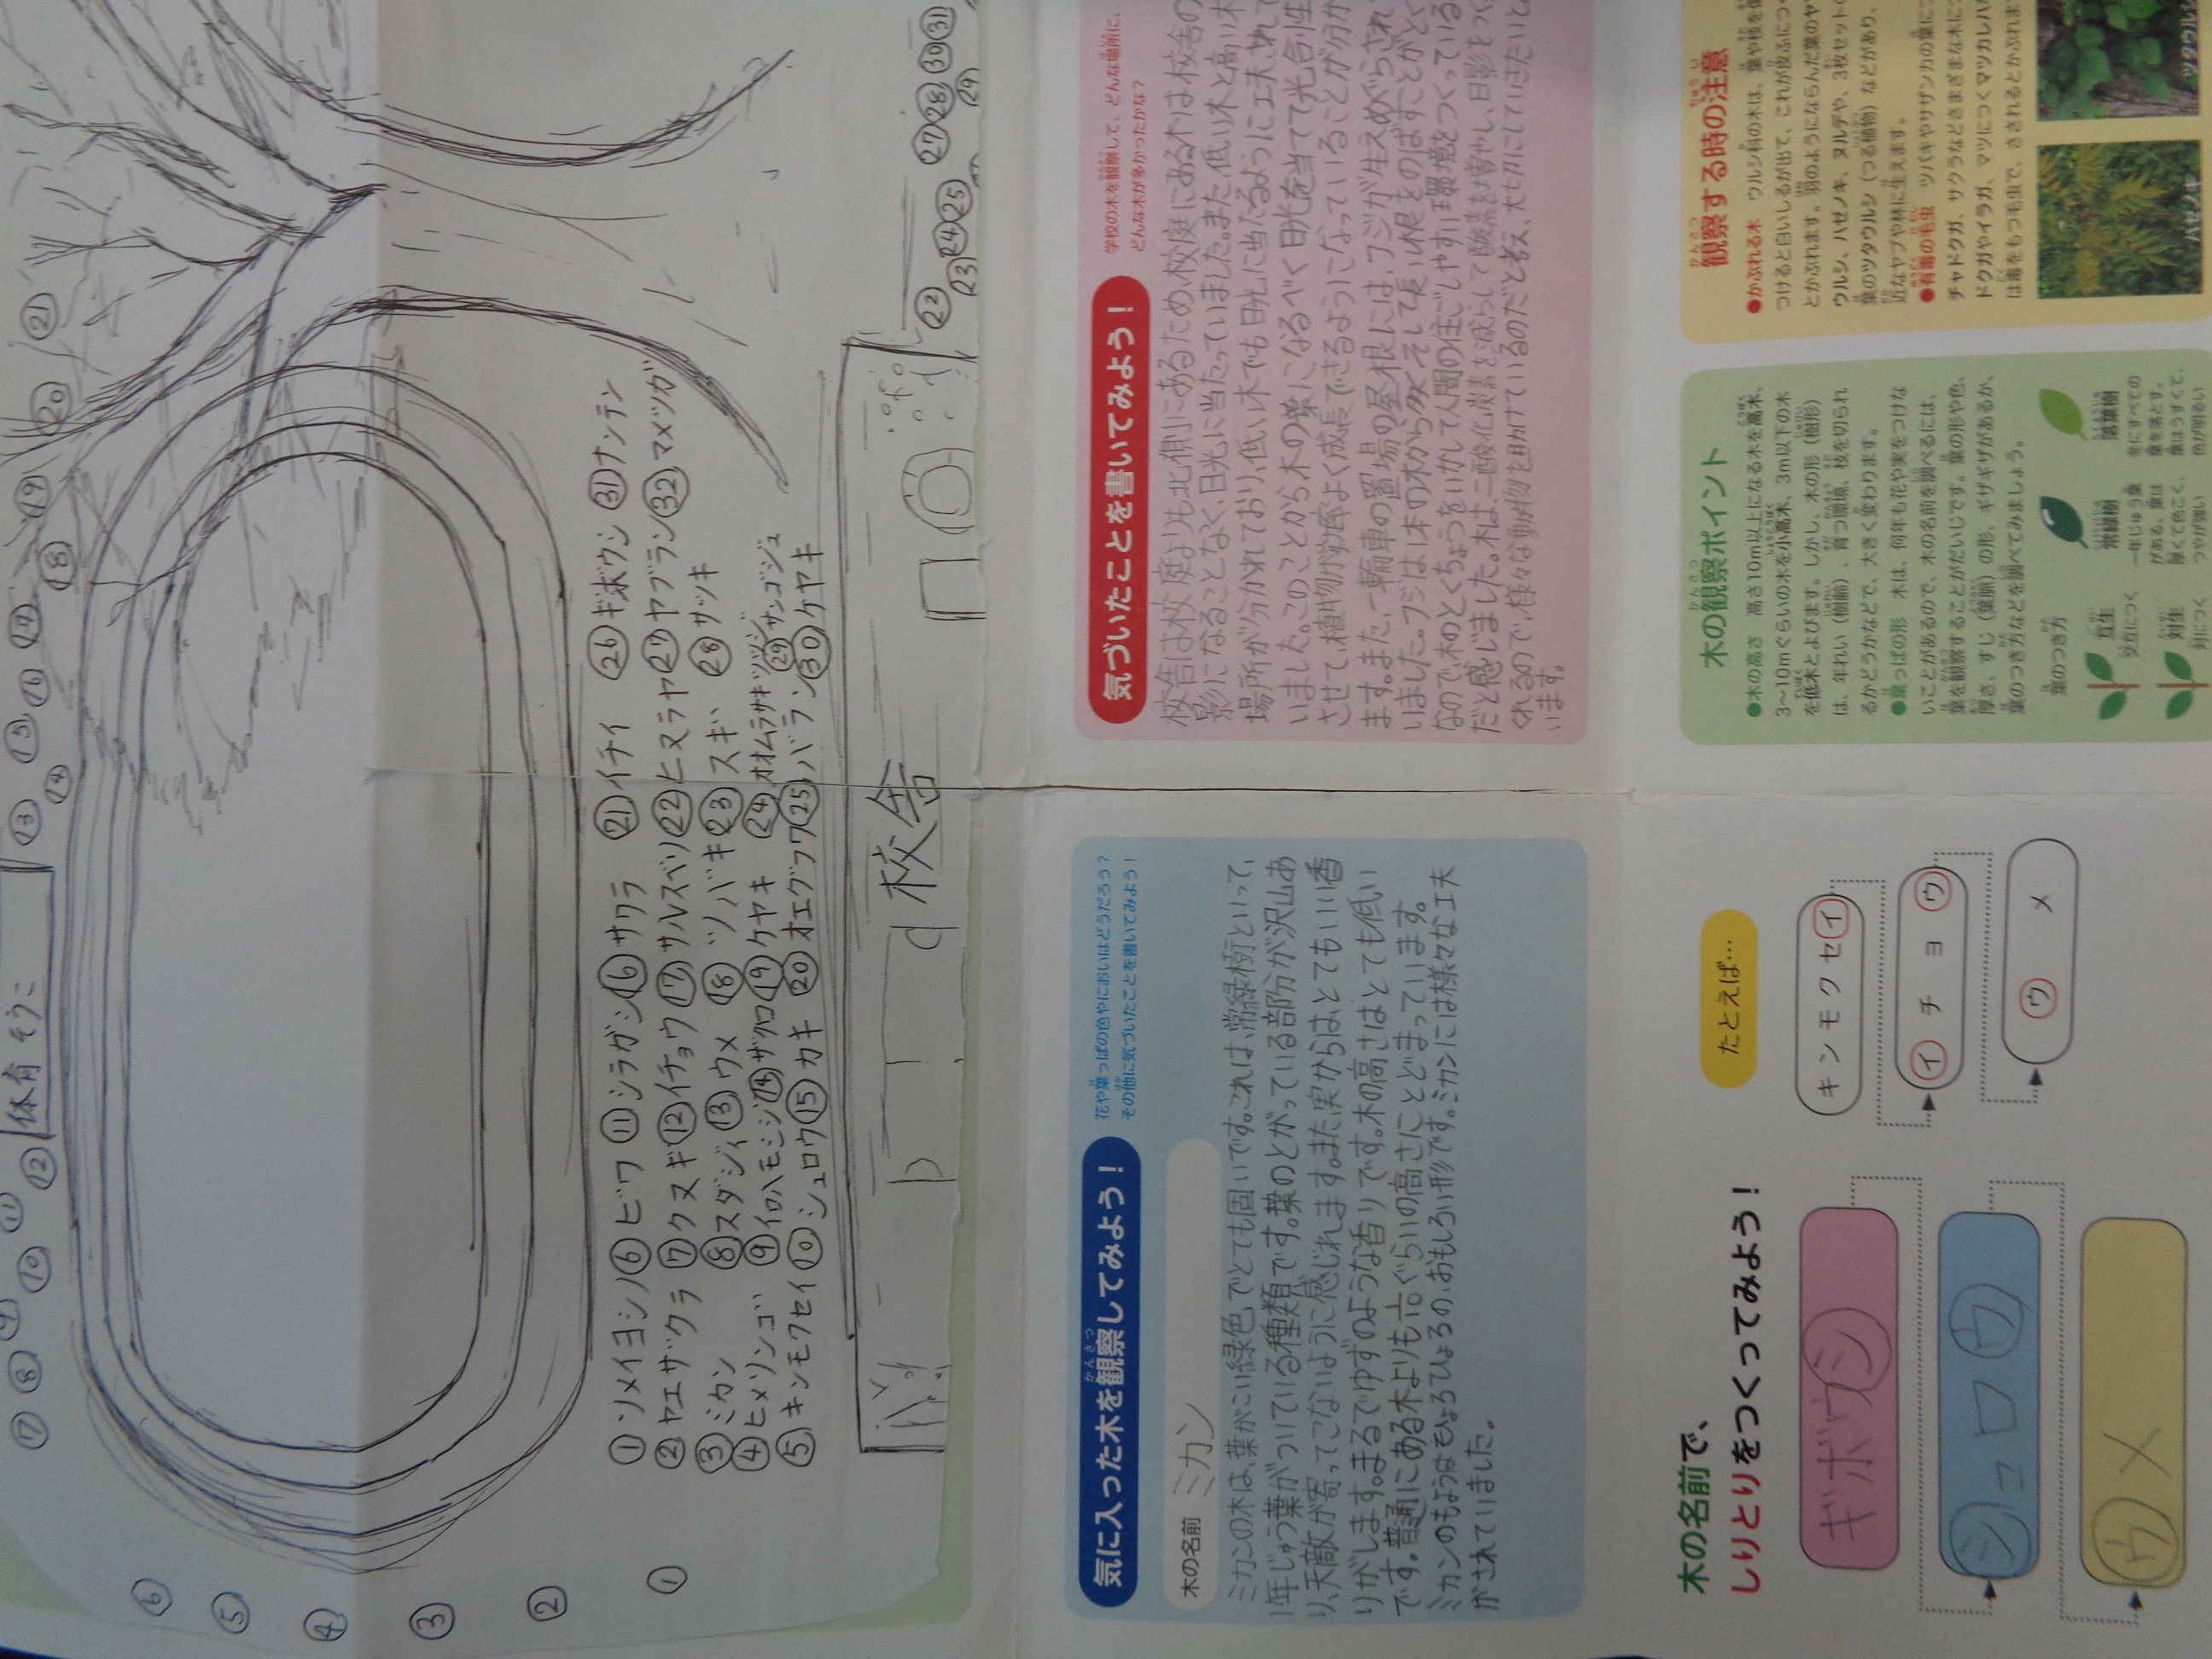 体育そうこ
① ソメイヨシノ ⑥ ビワ ⑪ シラガシ ⑯ サクラ ㉑ イチイ ㉖ ギボウシ ㉛ ナンテン
② ヤエザクラ ⑦ クヌギ ⑫ イチョウ ⑰ サルスベリ ㉒ ヒマラヤ ㉗ ヤブラン ㉜ マメツガ
③ ミカン ⑧ スダジイ ⑬ ウメ ⑱ ツバキ ㉓ スギ ㉘ サツキ
④ ヒメリンゴ ⑨ イロハモミジ ⑭ ザクロ ⑲ ケヤキ ㉔ オオムラサキツツジ ㉙ サンゴジュ
⑤ キンモクセイ ⑩ シュロウ ⑮ カキ ⑳ オエグワ ㉕ バラン ㉚ ケヤキ
校舎
気に入った木を観察してみよう!
花や葉っぱの色やにおいはどうだろう?
その他に気づいたことを書いてみよう!
木の名前 ミカン
ミカンの木は、葉がこい緑色でとても固いです。これは、常緑樹といって、
1年じゅう葉がついている種類です。葉のとがっている部分が沢山あ
り、天敵が寄ってこないように感じれます。また、実からは、とてもいい香
りがします。まるでゆずのような香りです。木の高さはとても低い
です。普通にある木よりも㎝ぐらいの高さにとどまっています。
ミカンのもようはひょろひょろの、おもしろい形です。ミカンには様々な工夫
がされていました。
気づいたことを書いてみよう!
学校の木を観察して、どんな場所に、
どんな木が多かったかな?
校舎は校庭よりも北側にあるため、校庭にある木は校舎の
影になることなく、日光に当たっていました。また、低い木と高い木
場所が分かれており、低い木でも日光に当たるように工夫されて
いました。このことから、木の葉になるべく日光を当てて光合性
させて、植物が効率よく成長できるようになっていることが分か
ます。また、一輪車の置場の屋根には、フジが生えめぐらされ
いました。フジは1本の木から多くそして長い根をのばすことがとく
なので、木のとくちょうをいかして人間の住ごしやすい環境をつくっている
だと感じました。木は、二酸化炭素を減らして酸素を増やし、日影をつく
くれるので、様々な動物を助けているのだと考え、大切にしていきたいと
います。
木の名前で、
しりとりをつくってみよう!
ギボウシ
シュロウ
ウメ
たとえば…
キンモクセイ
イチョウ
ウメ
木の観察ポイント
●木の高さ 高さ10m以上になる木を高木、
3〜10mぐらいの木を小高木、3m以下の木
を低木とよびます。しかし、木の形(樹形)
は、年れい(樹齢)、育つ環境、枝を切られ
るかどうかなどで、大きく変わります。
●葉っぱの形 木は、何年も花や実をつけな
いことがあるので、木の名前を調べるには、
葉を観察することがだいじです。葉の形や色、
厚さ、すじ(葉脈)の形、ギザギザがあるか、
葉のつき方などを調べてみましょう。
葉のつき方
互生
交互につく
対生
対につく
常緑樹
一年じゅう葉
がある。葉は
厚くて色こく、
つやが強い
落葉樹
冬にすべての
葉を落とす。
葉はうすくて、
色が明るい
観察する時の注意
●かぶれる木 ウルシ科の木は、葉や枝を
つけると白いしるが出て、これが皮ふにつ
とかぶれます。羽のようにならんだ葉のヤ
ウルシ、ハゼノキ、ヌルデや、3枚セットの
葉のツタウルシ(つる植物)などがあり、
近なヤブや林に生えます。
●有毒の毛虫 ツバキやサザンカの葉に
チャドクガ、サクラなどさまざまな木に
ドクガやイラガ、マツにつくマツカレハ
は毒をもつ毛虫で、さされるとかぶれま
ハゼノキ
ツタウルシ